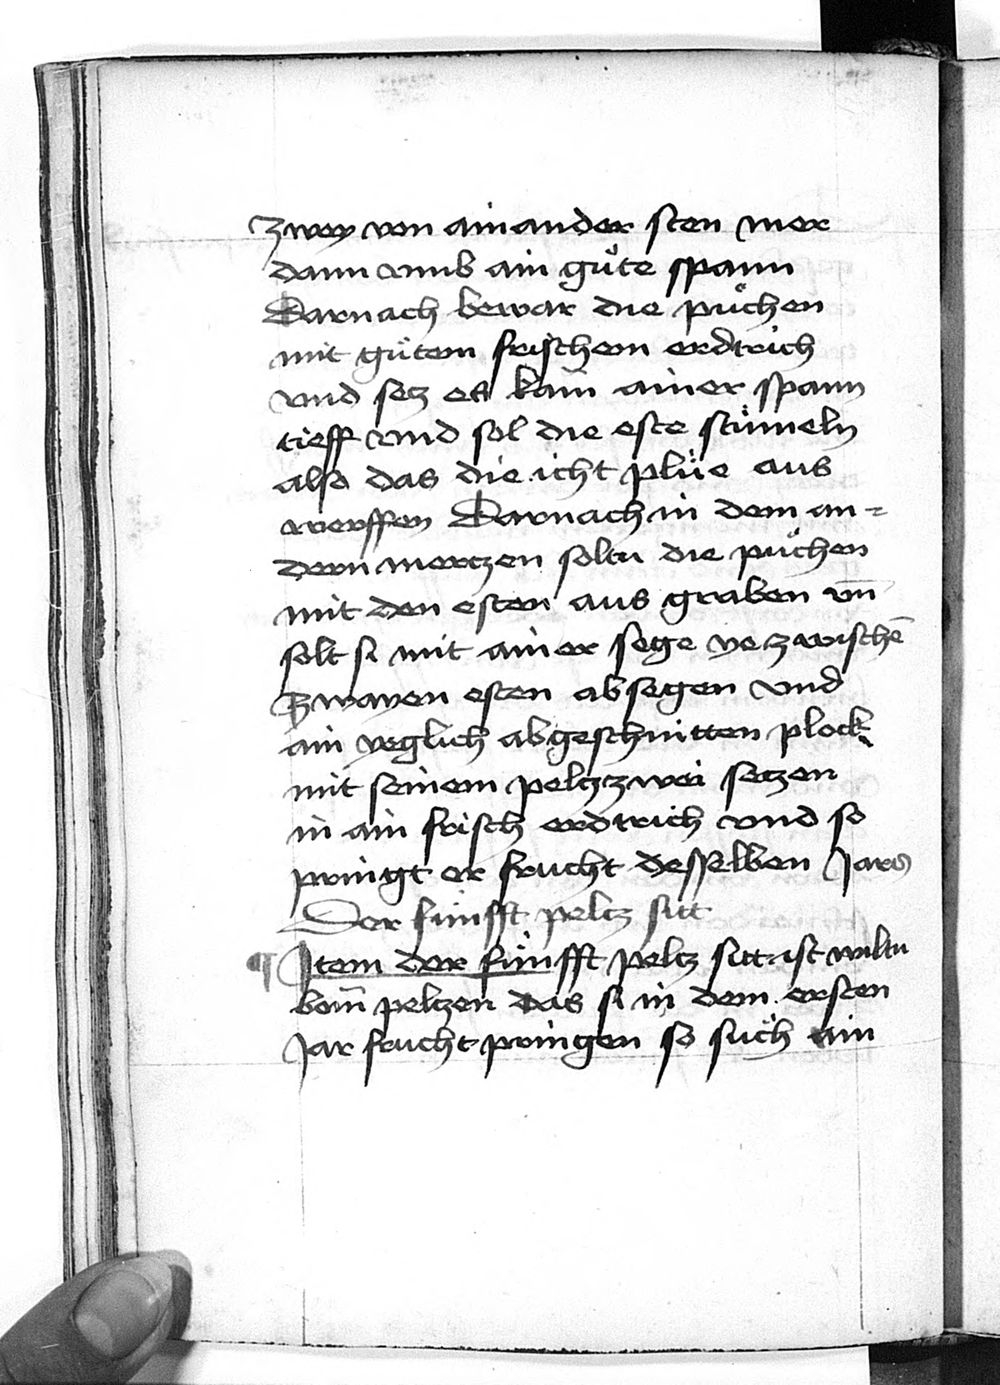 zwey von ainander sten mer
dann vmb ain gůte spann
Darnach bewar die půchen
mit gůtem frischem erdtrich
vnd secz es kain ainer spann
tieff vnd sol die este stümeln
also das die icht plüe aus
werffen Darnach in dem an=
dern mertzen soltu die půchen
mit den esten aus graben vn̄
solt si mit ainer sege ye zwischē
zwayen esten absegen vnd
ain yeglich abgeschnitten plock
mit seinem peltzzwei setzen
in ain frisch erdtrich vnd so
pringt er frucht desselben Jars
Der fünfft peltz sitt
¶ Item der fünfft peltz sitt ist wiltu
bom̄ peltzen das si in dem ersten
Jar frucht pringen so sůch ain